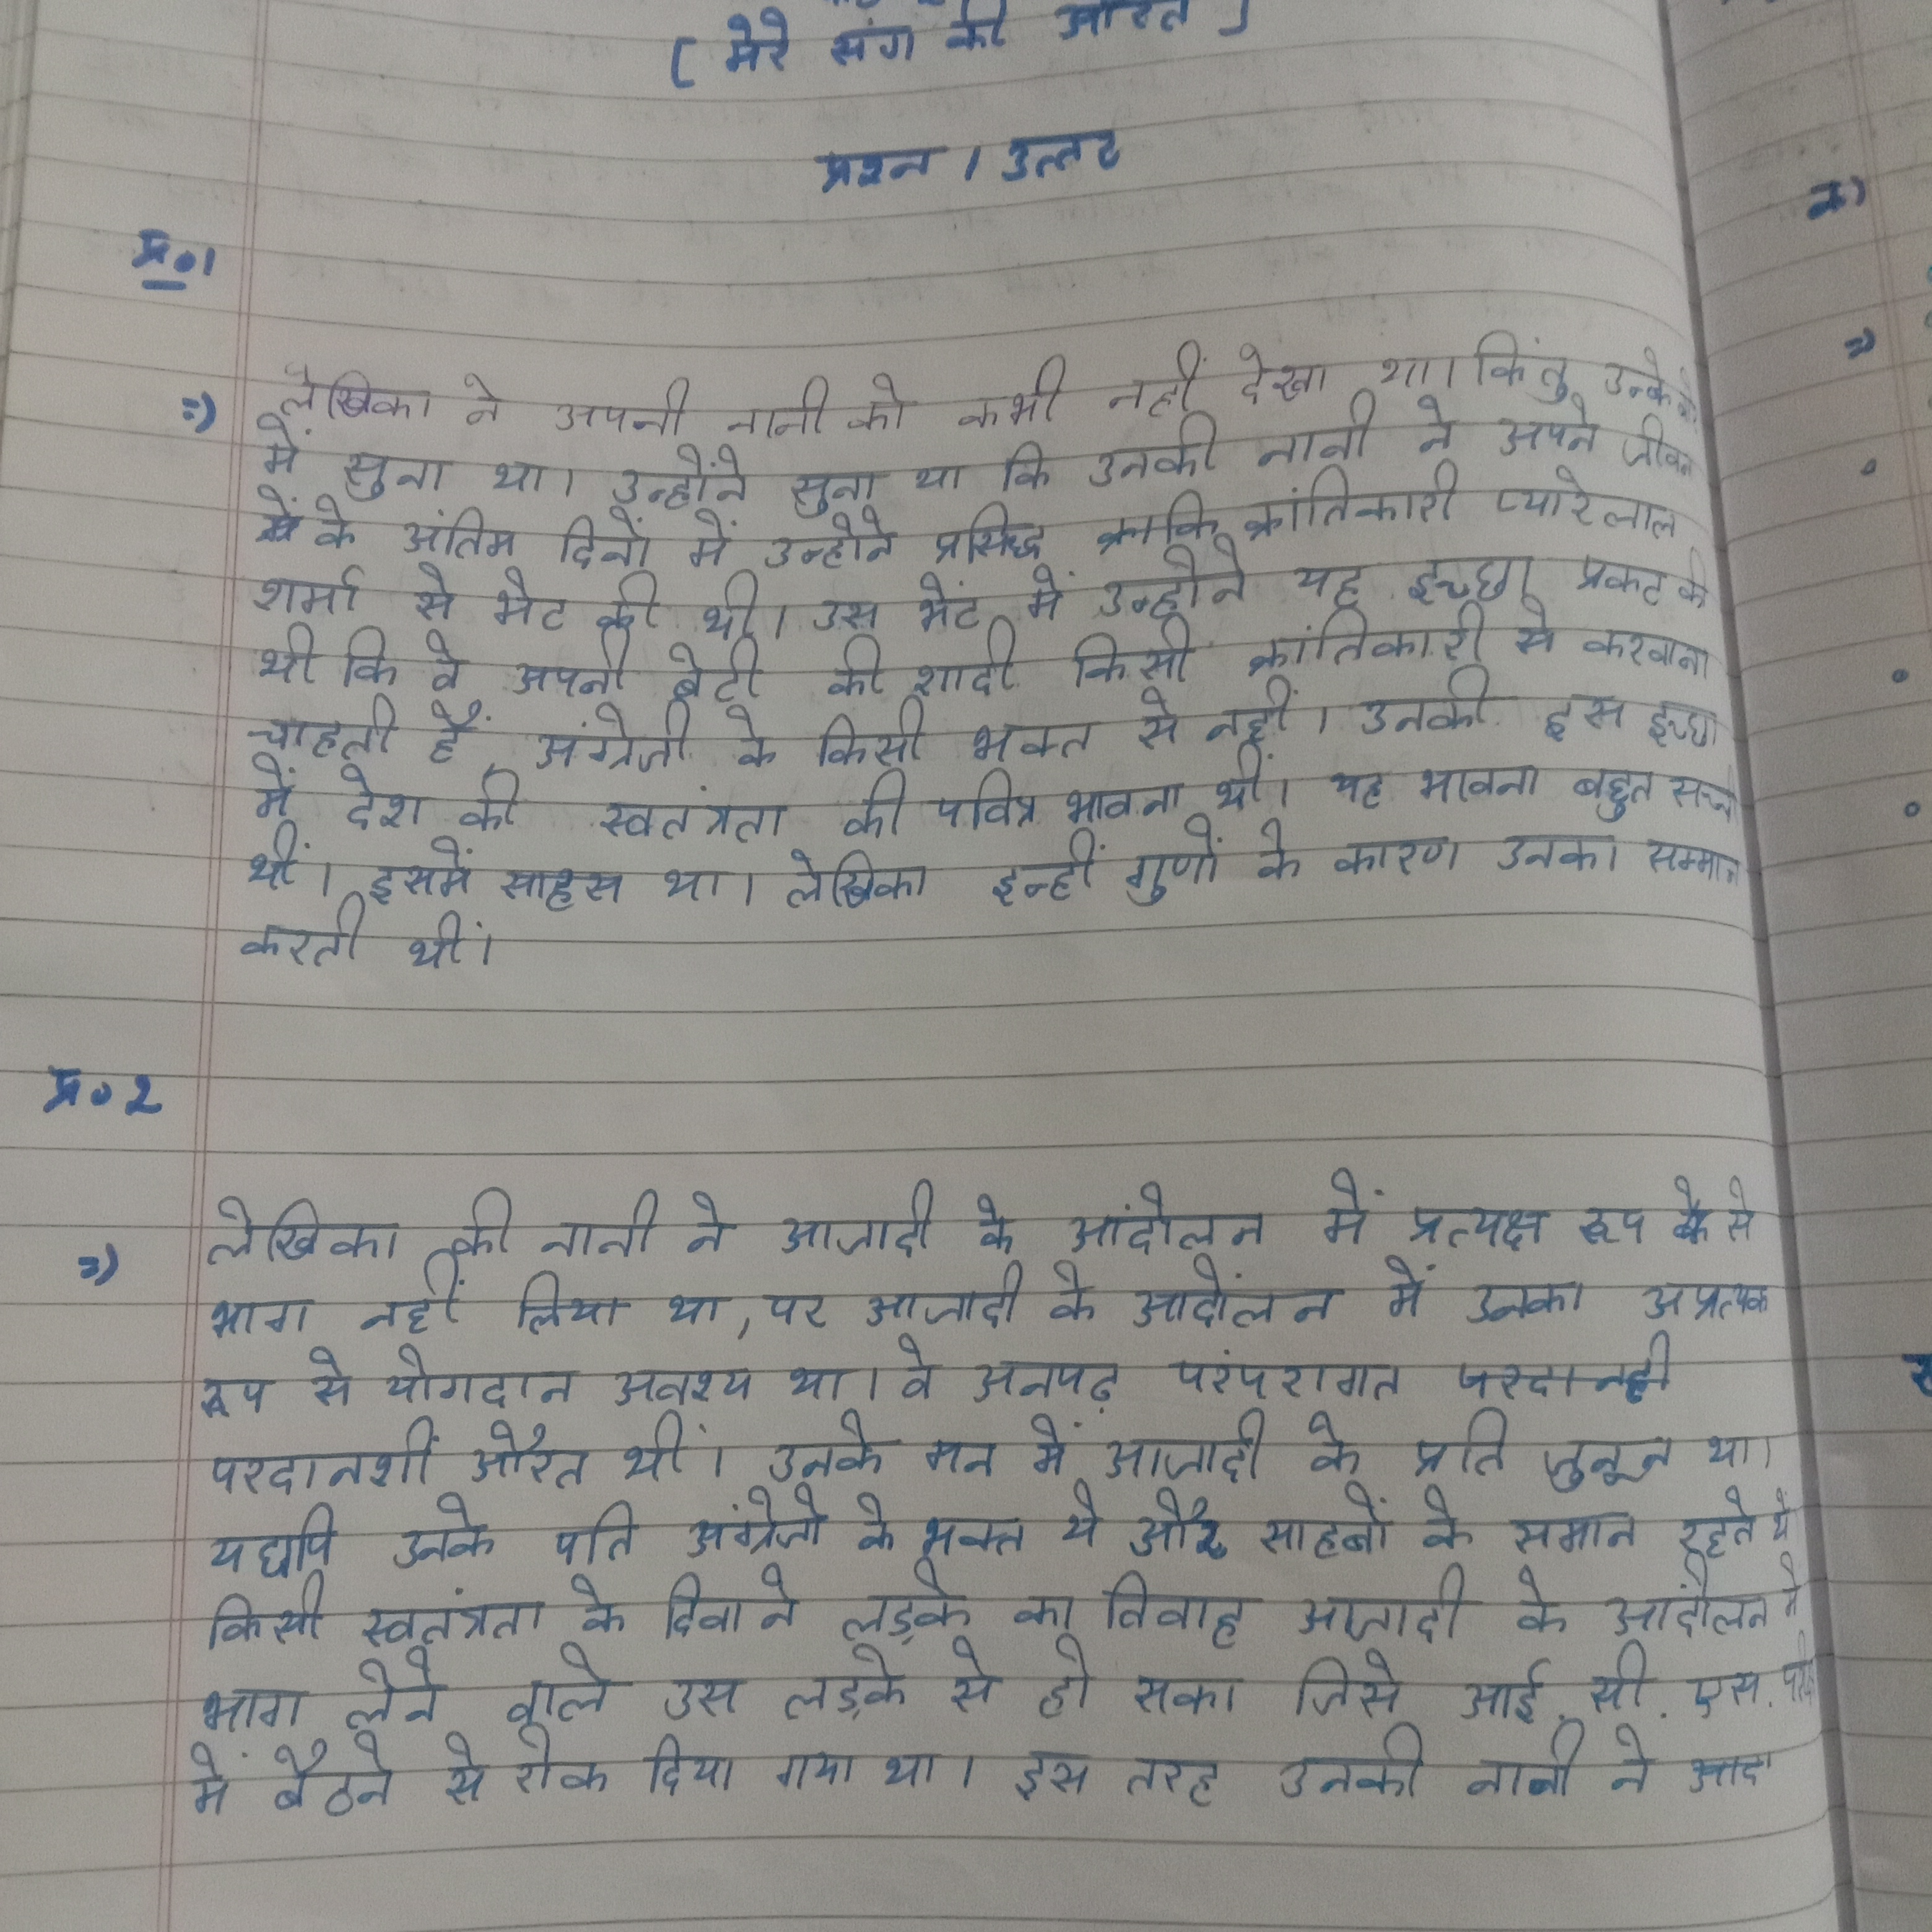 [ मेरे संग की औरतें ]
प्रश्न / उत्तर
प्र०1
=) लेखिका ने अपनी नानी को कभी नहीं देखा था। किंतु उनके
में सुना था। उन्होंने सुना था कि उनकी नानी ने अपने जीवन
के अंतिम दिनों में उन्होने प्रसिद्ध क्रांतिकारी प्यारेलाल
शर्मा से भेंट की थी। उस भेंट में उन्होने यह इच्छा प्रकट की
थी कि वे अपनी बेटी की शादी किसी क्रांतिकारी से करवाना
चाहती हैं, अंग्रेजों के किसी भक्त से नहीं। उनकी इस इच्छा
में देश की स्वतंत्रता की पवित्र भावना थी। यह भावना बहुत सच्ची
थीं। इसमें साहस था। लेखिका इन्हीं गुणों के कारण उनका सम्मान
करती थीं।
प्र०2
=) लेखिका की नानी ने आजादी के आंदोलन में प्रत्यक्ष रूप से
भाग नहीं लिया था, पर आजादी के आदोंलन में उनका अप्रत्यक्ष
रूप से योगदान अवश्य था। वे अनपढ़ परंपरागत
परदानशीं औरत थीं। उनके मन में आजादी के प्रति जुनून था।
यद्यपि उनके पति अंग्रेजो के भक्त थे और साहबों के समान रहते थे
किसी स्वतंत्रता के दिवाने लड़के का विवाह आजादी के आंदोलन में
भाग लेने वाले उस लड़के से हो सका जिसे आई. सी. एस.
में बैठने से रोक दिया गया था। इस तरह उनकी नानी ने